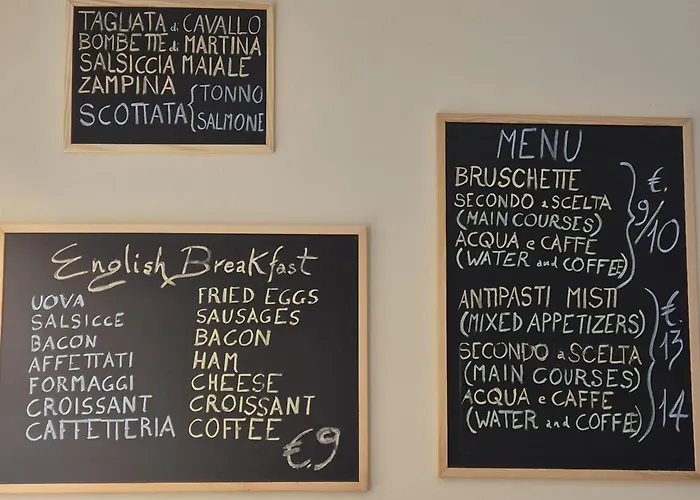 TAGLIATA di CAVALLO
BOMBETTE di MARTINA
SALSICCIA MAIALE
ZAMPINA
SCOTTATA { TONNO
SALMONE
English Breakfast
UOVA FRIED EGGS
SALSICCE SAUSAGES
BACON BACON
AFFETTATI HAM
FORMAGGI CHEESE
CROISSANT CROISSANT
CAFFETTERIA COFFEE
€9
MENU
BRUSCHETTE
SECONDO a SCELTA
(MAIN COURSES)
ACQUA e CAFFE
(WATER and COFFEE)
€.
9/10
ANTIPASTI MISTI
(MIXED APPETIZERS)
SECONDO a SCELTA
(MAIN COURSES)
ACQUA e CAFFE
(WATER and COFFEE)
€.
13/14